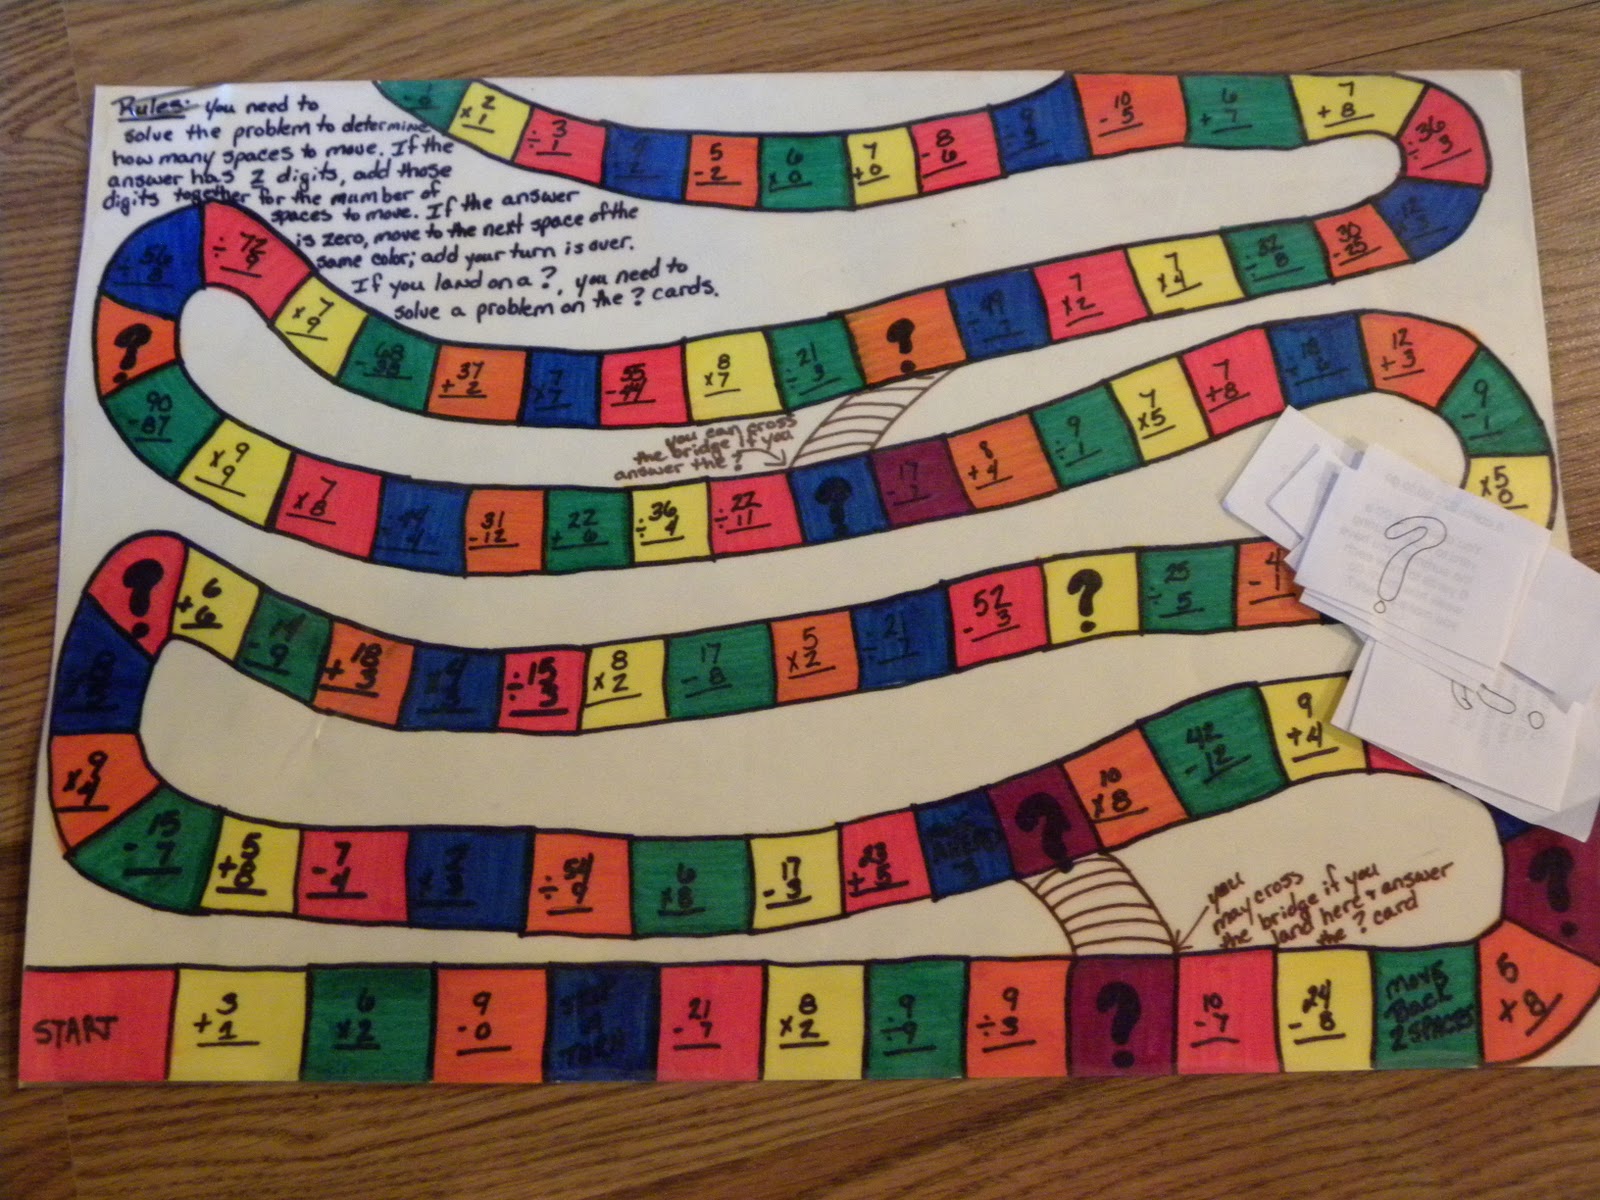 Rules: you need to
solve the problem to determine
how many spaces to move. If the
answer has 2 digits, add those
digits together for the number of
spaces to move. If the answer
is zero, move to the next space of the
same color; add your turn is over.
If you land on a ?, you need to
solve a problem on the ? cards.
2
x 1
÷ 3
1
5
- 2
6
x 0
7
+ 0
- 8
6
10
- 5
6
+ 7
7
+ 8
÷ 36
3
30
- 25
÷ 32
8
7
x 4
7
x 2
÷ 49
7
?
÷ 21
3
8
x 7
- 55
44
x 7
7
+ 37
2
- 68
38
x 7
9
÷ 72
9
÷ 56
8
?
90
- 87
x 9
9
7
x 8
31
- 12
22
+ 6
÷ 36
4
÷ 22
11
?
- 17
7
8
+ 4
9
÷ 1
7
x 5
7
+ 8
12
+ 3
9
- 1
x 5
0
you can cross
the bridge if you
answer the ?
?
6
+ 6
- 14
9
+ 18
3
÷ 15
3
8
x 2
17
- 8
5
x 2
÷ 21
7
- 52
3
?
÷ 25
5
- 4
9
x 4
15
- 7
+ 5
8
- 7
4
÷ 54
9
6
x 8
17
- 3
+ 23
5
?
10
x 8
42
- 12
9
+ 4
?
?
you
may cross
the bridge if you
land here & answer
the ? card
START
3
+ 1
6
x 2
9
- 0
TURN
21
- 7
8
x 2
9
÷ 9
9
÷ 3
?
10
- 7
24
- 8
MOVE
Back
2 SPACES
5
x 8